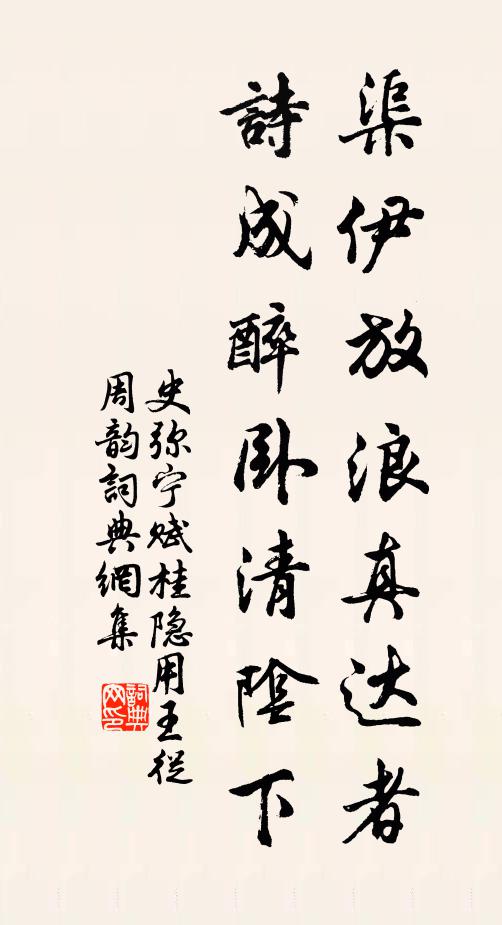 渠伊放浪真达者
詩成醉卧清陰下
史弥宁赋桂隐用王從
周韵詞典網集
詞典网印